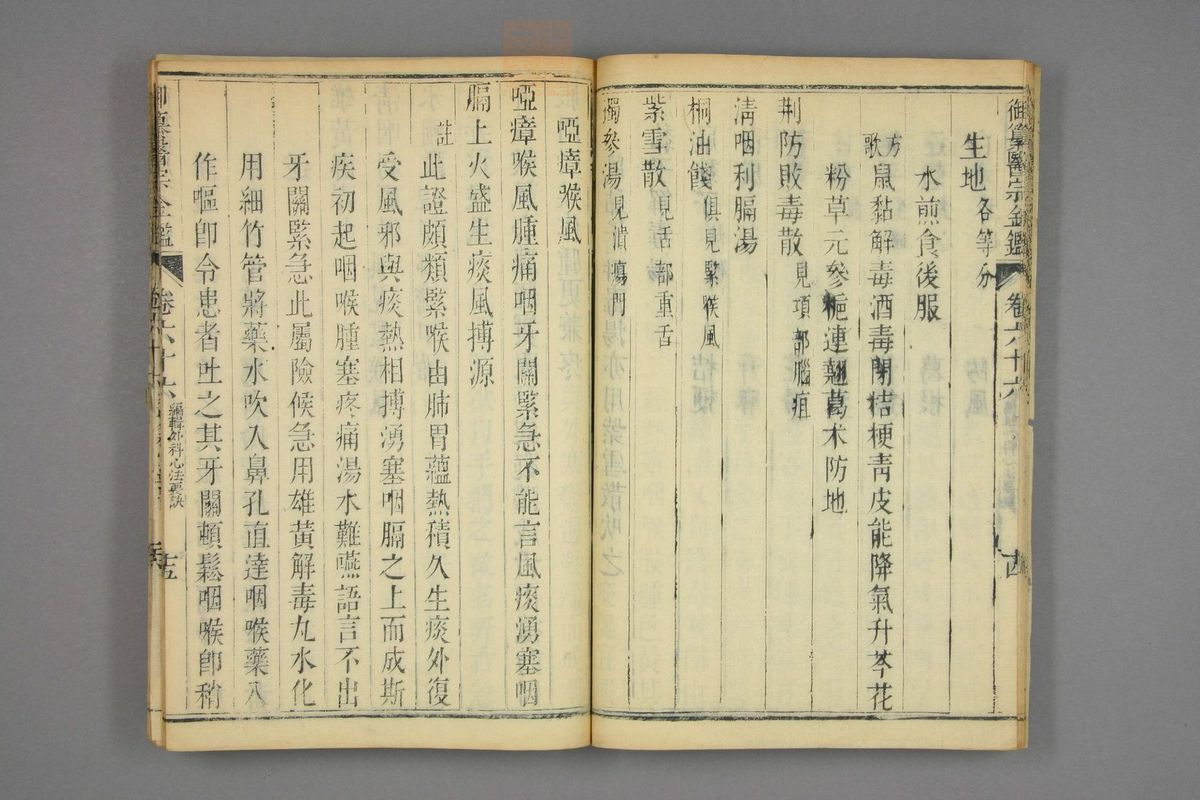 御纂醫宗金鑑 卷六十六
生地各等分
水煎食後服
方歌 鼠黏解毒酒毒閉桔梗靑皮能降氣升芩花
粉草元參梔連翹葛朮防地
荆防敗毒散見項部腦疽
淸咽利膈湯
桐油餞俱見緊喉風
紫雪散見舌部重舌
獨參湯見潰瘍門
啞瘴喉風
啞瘴喉風腫痛咽牙關緊急不能言風痰湧塞咽
膈上火盛生痰風搏源
註 此證頗類緊喉由肺胃蘊熱積久生痰外復
受風邪與痰熱相搏湧塞咽膈之上而成斯
疾初起咽喉腫塞疼痛湯水難嚥語言不出
牙關緊急此屬險候急用雄黃解毒丸水化
用細竹管將藥水吹入鼻孔直達咽喉藥入
作嘔卽令患者吐之其牙關頓鬆咽喉卽稍
御纂醫宗金鑑 卷六十六 編輯外科心法要訣